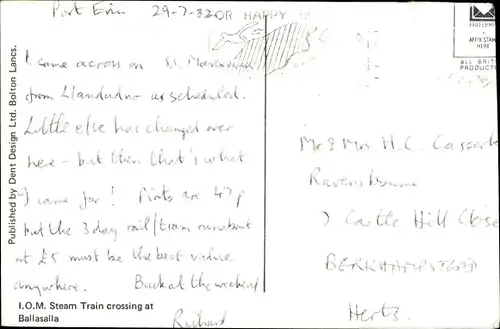 Port Erin 29-7-82
OR HAPPY
I came across on S.S. Manxman
from Llandudno as scheduled.
Little else has changed over
here - but then that's what
I came for! Pints are 47p
but the 3 day rail/tram runabout
at £5 must be the best value
anywhere. Back at the weekend
Richard
I.O.M. Steam Train crossing at
Ballasalla
Published by Dent Design Ltd. Bolton Lancs.
AFFIX STAMP
HERE
ALL BRIT
PRODUCT
Mr & Mrs H.C.
Ravensbourne
7 Castle Hill Close
BERKHAMPSTEAD
Herts.